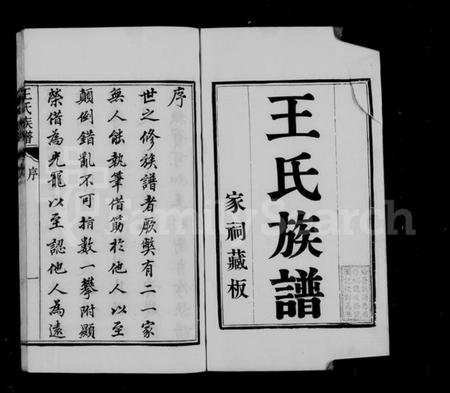 王氏族譜
家祠藏板
序
世之修族譜者厥獘有二一家
無人能執筆借筯於他人以至
顛倒錯亂不可指數一攀附顯
榮借為光寵以至認他人為遠
王氏族譜
序
FamilySearch